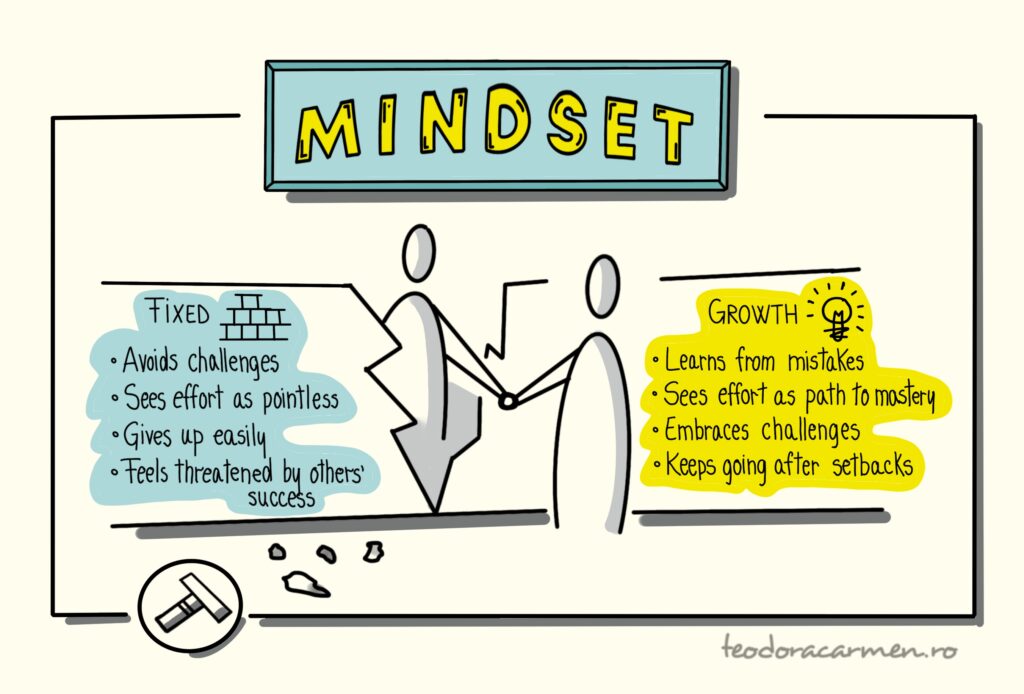 MINDSET
FIXED
• Avoids challenges
• Sees effort as pointless
• Gives up easily
• Feels threatened by others'
success
GROWTH
• Learns from mistakes
• Sees effort as path to mastery
• Embraces challenges
• Keeps going after setbacks
teodoracarmen.ro